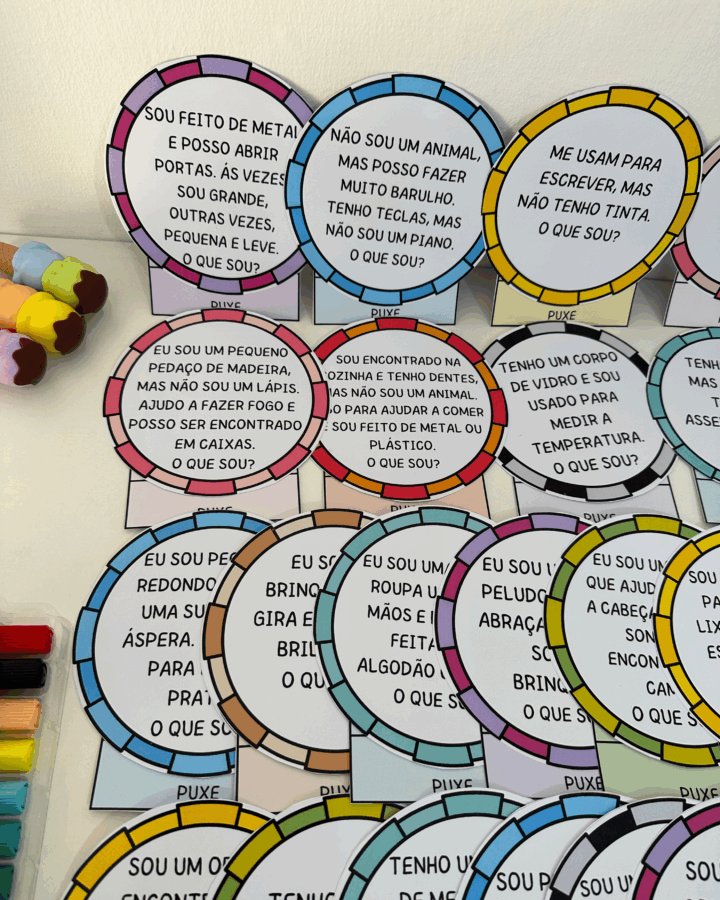 SOU FEITO DE METAL
E POSSO ABRIR
PORTAS. ÁS VEZES
SOU GRANDE,
OUTRAS VEZES,
PEQUENA E LEVE.
O QUE SOU?
PUXE
NÃO SOU UM ANIMAL,
MAS POSSO FAZER
MUITO BARULHO.
TENHO TECLAS, MAS
NÃO SOU UM PIANO.
O QUE SOU?
PUXE
ME USAM PARA
ESCREVER, MAS
NÃO TENHO TINTA.
O QUE SOU?
PUXE
EU SOU UM PEQUENO
PEDAÇO DE MADEIRA,
MAS NÃO SOU UM LÁPIS.
AJUDO A FAZER FOGO E
POSSO SER ENCONTRADO
EM CAIXAS.
O QUE SOU?
PUXE
SOU ENCONTRADO NA
OZINHA E TENHO DENTES,
AS NÃO SOU UM ANIMAL.
O PARA AJUDAR A COMER
SOU FEITO DE METAL OU
PLÁSTICO.
O QUE SOU?
PUXE
TENHO UM CORPO
DE VIDRO E SOU
USADO PARA
MEDIR A
TEMPERATURA.
O QUE SOU?
PUXE
TENH
MAS
ASSE
EU SOU PEQ
REDONDO
UMA SU
ÁSPERA.
PARA
PRAT
O QUE SO
PUXE
EU SO
BRINQ
GIRA E
BRIL
O QU
PUXE
EU SOU UM
ROUPA U
MÃOS E
FEITA
ALGODÃO
O QUE SO
PUXE
EU SOU U
PELUDO
ABRAÇA
SO
BRINQ
O QUE S
PUXE
EU SOU UM
QUE AJUD
A CABEÇA
SON
ENCON
CAM
O QUE S
PUXE
SOU
PA
LIX
ES
SOU UM OB
ENCONT
TENHO
TENHO U
DE ME
SOU P
SOU U
SOU